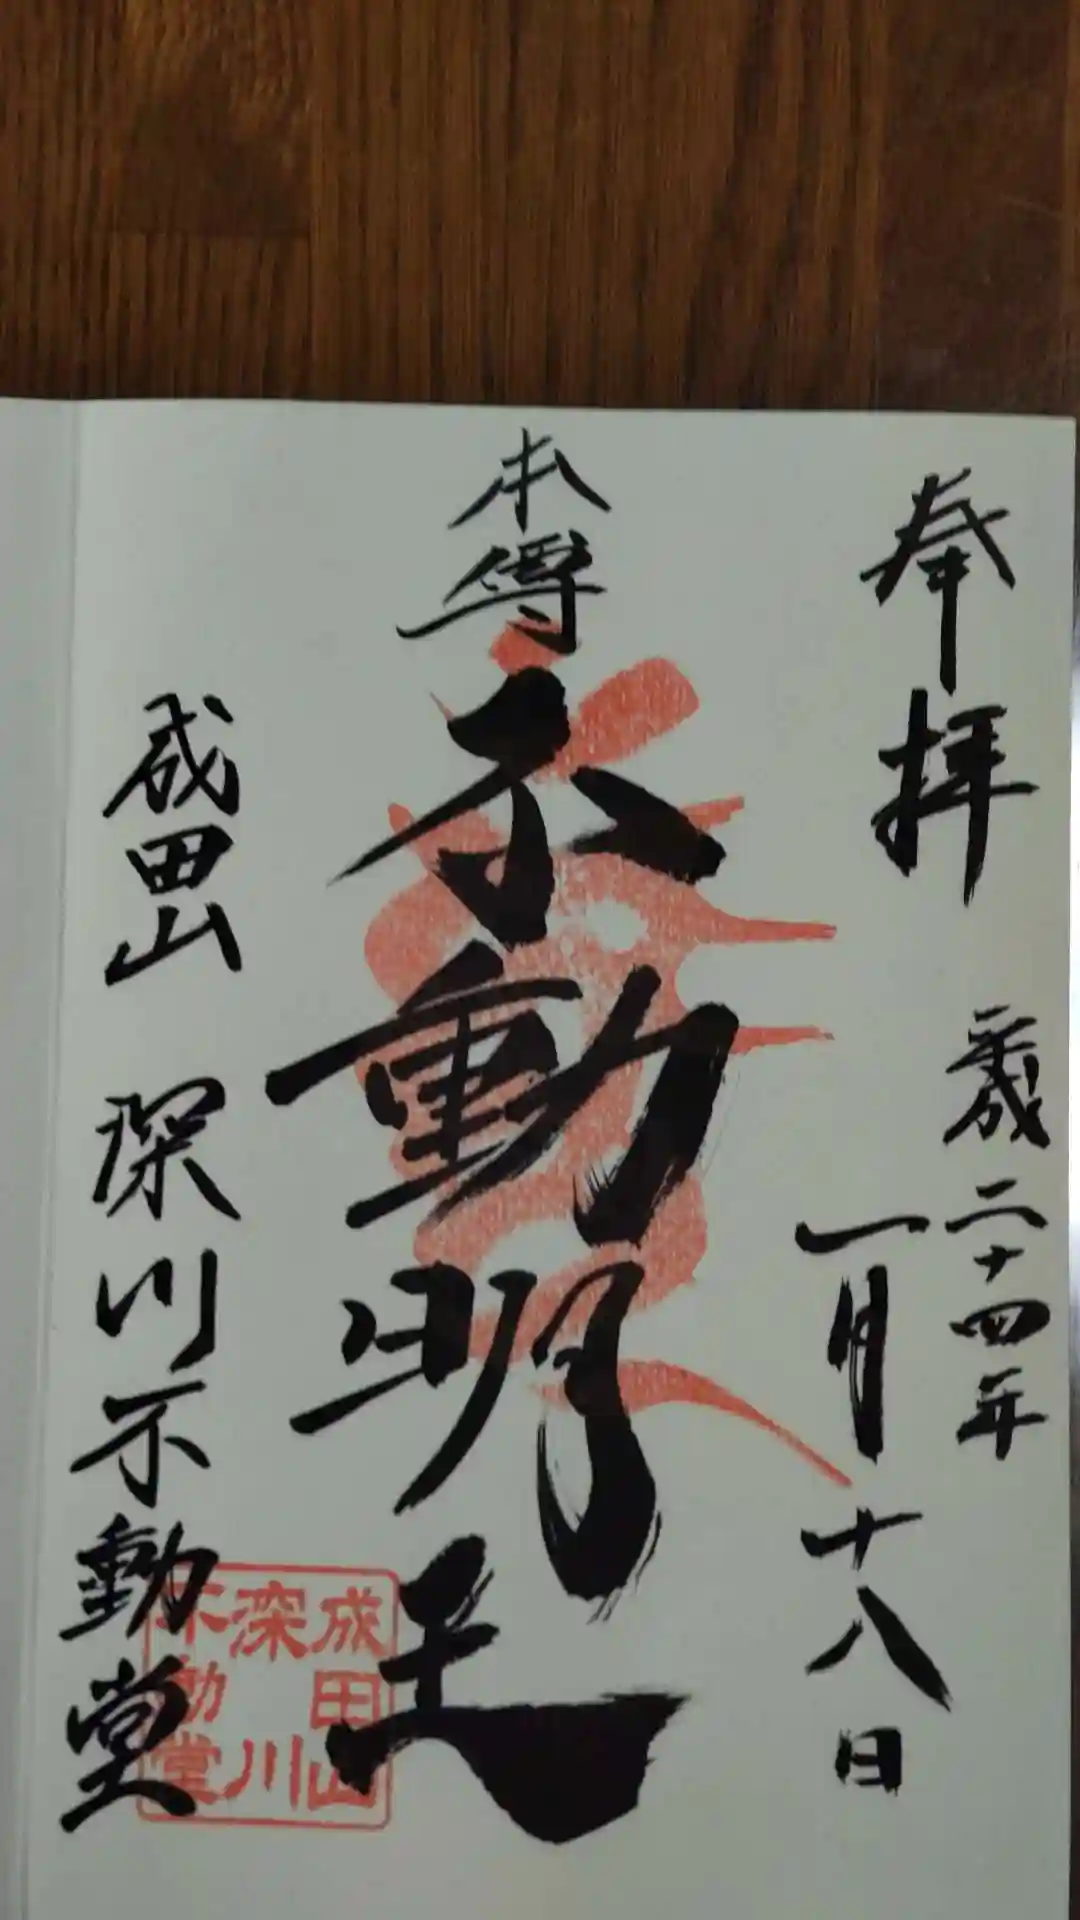 奉拝
平成二十四年
一月十八日
本尊
不動明王
成田山 深川不動堂
成田山
深川
不動堂